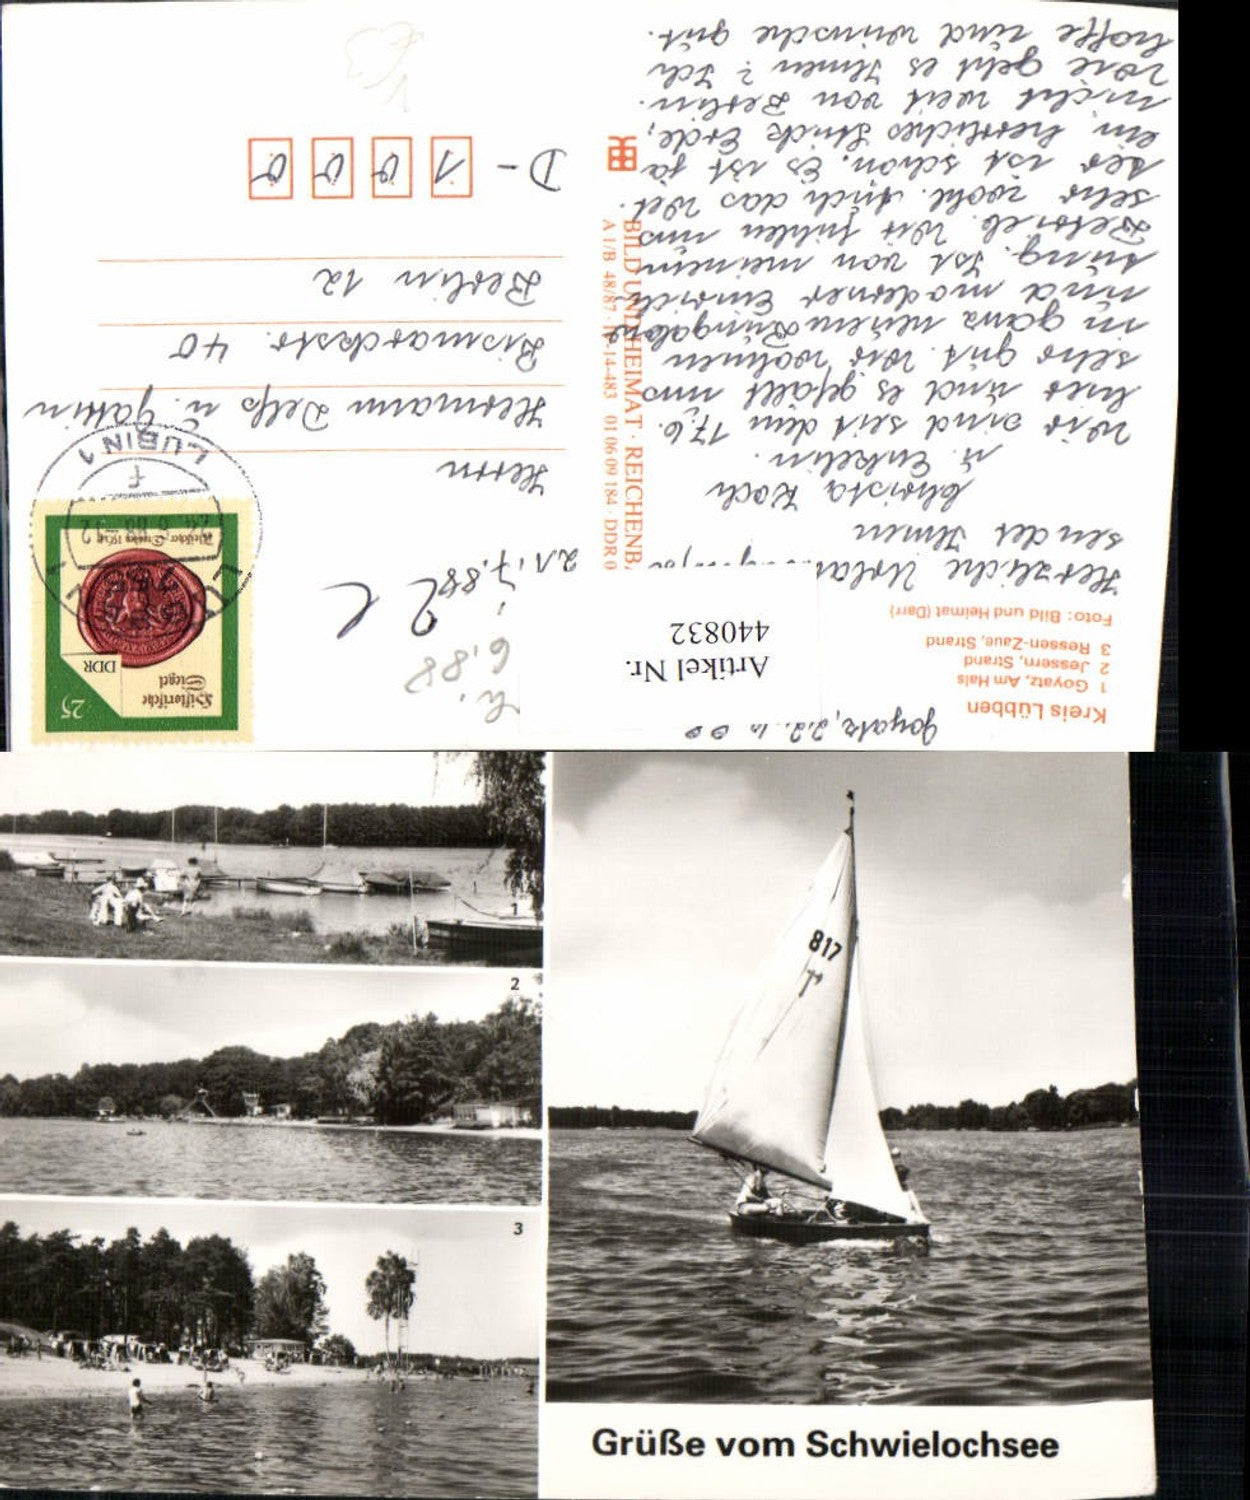 Kreis Lübben
1 Goyatz, Am Hals
2 Jessern, Strand
3 Ressen-Zaue, Strand
Foto: Bild und Heimat (Darr)
Goyatz, 22. 6. 88
Herzliche
sendet Ihnen
Christa Koch
u. Enkelin.
Wir sind seit dem 17.6.
hier und es gefällt uns
sehr gut. Wir wohnen
in ganz neuem Bungalow
und moderner Einrich-
tung. Ist von meinem
Betrieb. Wir fühlen uns
sehr wohl. Auch das Wet-
ter ist schön. Es ist ja
ein herrliches Stück Erde,
nicht weit von Berlin.
Wie geht es Ihnen? Ich
hoffe und wünsche gut.
Artikel Nr.
440832
BILD UND HEIMAT · REICHENB
A 1/B 48/87 14-483 01 06 09 184 · DDR
25
Historische
Siegel
DDR
LUBIN 1
F
6.88
21.7.88
Herrn
Hermann Delfs u. Gattin
Bismarckstr. 40
Berlin 12
D - 1 0 0 0
1
2
3
817
Grüße vom Schwielochsee